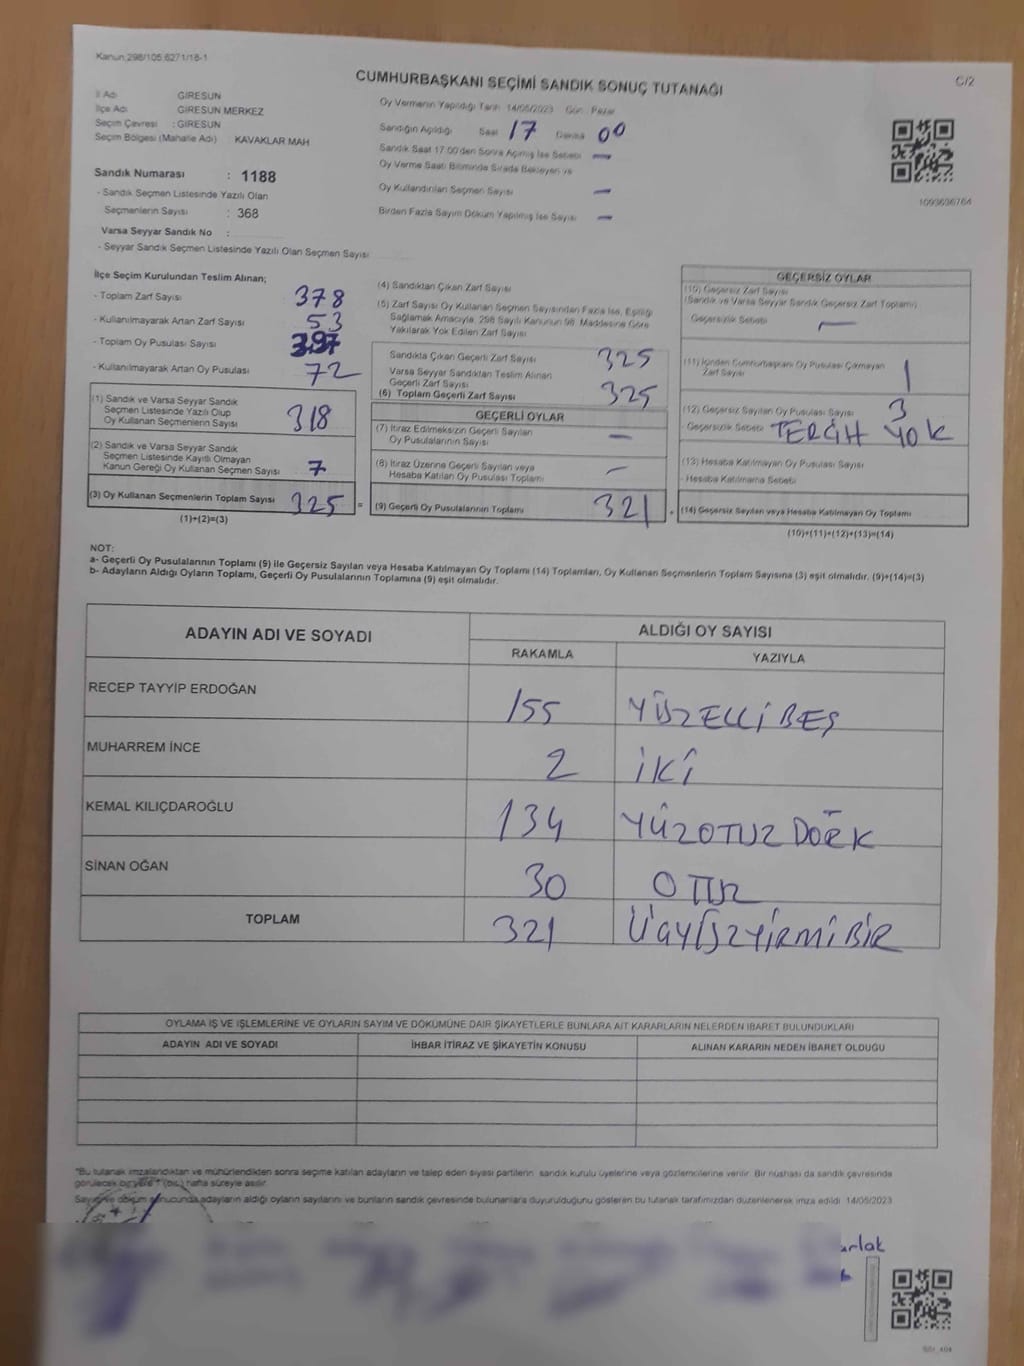 Kanun,298/105,6271/18-1
C/2
CUMHURBAŞKANI SEÇİMİ SANDIK SONUÇ TUTANAĞI
İl Adı GİRESUN
İlçe Adı GİRESUN MERKEZ
Seçim Çevresi : GİRESUN
Seçim Bölgesi (Mahalle Adı) KAVAKLAR MAH
Sandık Numarası : 1188
- Sandık Seçmen Listesinde Yazılı Olan
Seçmenlerin Sayısı : 368
Varsa Seyyar Sandık No :
- Seyyar Sandık Seçmen Listesinde Yazılı Olan Seçmen Sayısı
Oy Vermenin Yapıldığı Tarih 14/05/2023 Gün : Pazar
Sandığın Açıldığı Saat 17 Dakika 00
Sandık Saat 17:00'den Sonra Açılmış İse Sebebi —
Oy Verme Saati Bitiminde Sırada Bekleyen ve
Oy Kullandırılan Seçmen Sayısı —
Birden Fazla Sayım Döküm Yapılmış İse Sayısı —
1093636764
İlçe Seçim Kurulundan Teslim Alınan;
- Toplam Zarf Sayısı 378
- Kullanılmayarak Artan Zarf Sayısı 53
- Toplam Oy Pusulası Sayısı 397
- Kullanılmayarak Artan Oy Pusulası 72
(1) Sandık ve Varsa Seyyar Sandık
Seçmen Listesinde Yazılı Olup
Oy Kullanan Seçmenlerin Sayısı 318
(2) Sandık ve Varsa Seyyar Sandık
Seçmen Listesinde Kayıtlı Olmayan
Kanun Gereği Oy Kullanan Seçmen Sayısı 7
(3) Oy Kullanan Seçmenlerin Toplam Sayısı 325 =
(1)+(2)=(3)
(4) Sandıktan Çıkan Zarf Sayısı
(5) Zarf Sayısı Oy Kullanan Seçmen Sayısından Fazla İse, Eşitliği
Sağlamak Amacıyla, 298 Sayılı Kanunun 98. Maddesine Göre
Yakılarak Yok Edilen Zarf Sayısı
Sandıkta Çıkan Geçerli Zarf Sayısı 325
Varsa Seyyar Sandıktan Teslim Alınan
Geçerli Zarf Sayısı
(6) Toplam Geçerli Zarf Sayısı 325
GEÇERLİ OYLAR
(7) İtiraz Edilmeksizin Geçerli Sayılan
Oy Pusulalarının Sayısı —
(8) İtiraz Üzerine Geçerli Sayılan veya
Hesaba Katılan Oy Pusulası Toplamı —
(9) Geçerli Oy Pusulalarının Toplamı 321 +
GEÇERSİZ OYLAR
(10) Geçersiz Zarf Sayısı
(Sandık ve Varsa Seyyar Sandık Geçersiz Zarf Toplamı)
Geçersizlik Sebebi —
(11) İçinden Cumhurbaşkanı Oy Pusulası Çıkmayan
Zarf Sayısı 1
(12) Geçersiz Sayılan Oy Pusulası Sayısı 3
- Geçersizlik Sebebi TERCİH YOK
(13) Hesaba Katılmayan Oy Pusulası Sayısı
- Hesaba Katılmama Sebebi
(14) Geçersiz Sayılan veya Hesaba Katılmayan Oy Toplamı
(10)+(11)+(12)+(13)=(14)
NOT:
a- Geçerli Oy Pusulalarının Toplamı (9) ile Geçersiz Sayılan veya Hesaba Katılmayan Oy Toplamı (14) Toplamları, Oy Kullanan Seçmenlerin Toplam Sayısına (3) eşit olmalıdır. (9)+(14)=(3)
b- Adayların Aldığı Oyların Toplamı, Geçerli Oy Pusulalarının Toplamına (9) eşit olmalıdır.
ADAYIN ADI VE SOYADI ALDIĞI OY SAYISI
RAKAMLA YAZIYLA
RECEP TAYYİP ERDOĞAN 155 YÜZELLİ BEŞ
MUHARREM İNCE 2 İKİ
KEMAL KILIÇDAROĞLU 134 YÜZOTUZ DÖRK
SİNAN OĞAN 30 OTUZ
TOPLAM 321 ÜÇYÜZYİRMİ BİR
OYLAMA İŞ VE İŞLEMLERİNE VE OYLARIN SAYIM VE DÖKÜMÜNE DAİR ŞİKAYETLERLE BUNLARA AİT KARARLARIN NELERDEN İBARET BULUNDUKLARI
ADAYIN ADI VE SOYADI İHBAR İTİRAZ VE ŞİKAYETİN KONUSU ALINAN KARARIN NEDEN İBARET OLDUĞU
"Bu tutanak imzalandıktan ve mühürlendikten sonra seçime katılan adayların ve talep eden siyasi partilerin sandık kurulu üyelerine veya gözlemcilerine verilir. Bir nüshası da sandık çevresinde
görülecek bir yere " (bir) hafta süreyle asılır.
Sayım ve döküm sonucunda adayların aldığı oyların sayılarını ve bunların sandık çevresinde bulunanlara duyurulduğunu gösteren bu tutanak tarafımızdan düzenlenerek imza edildi 14/05/2023
arlak